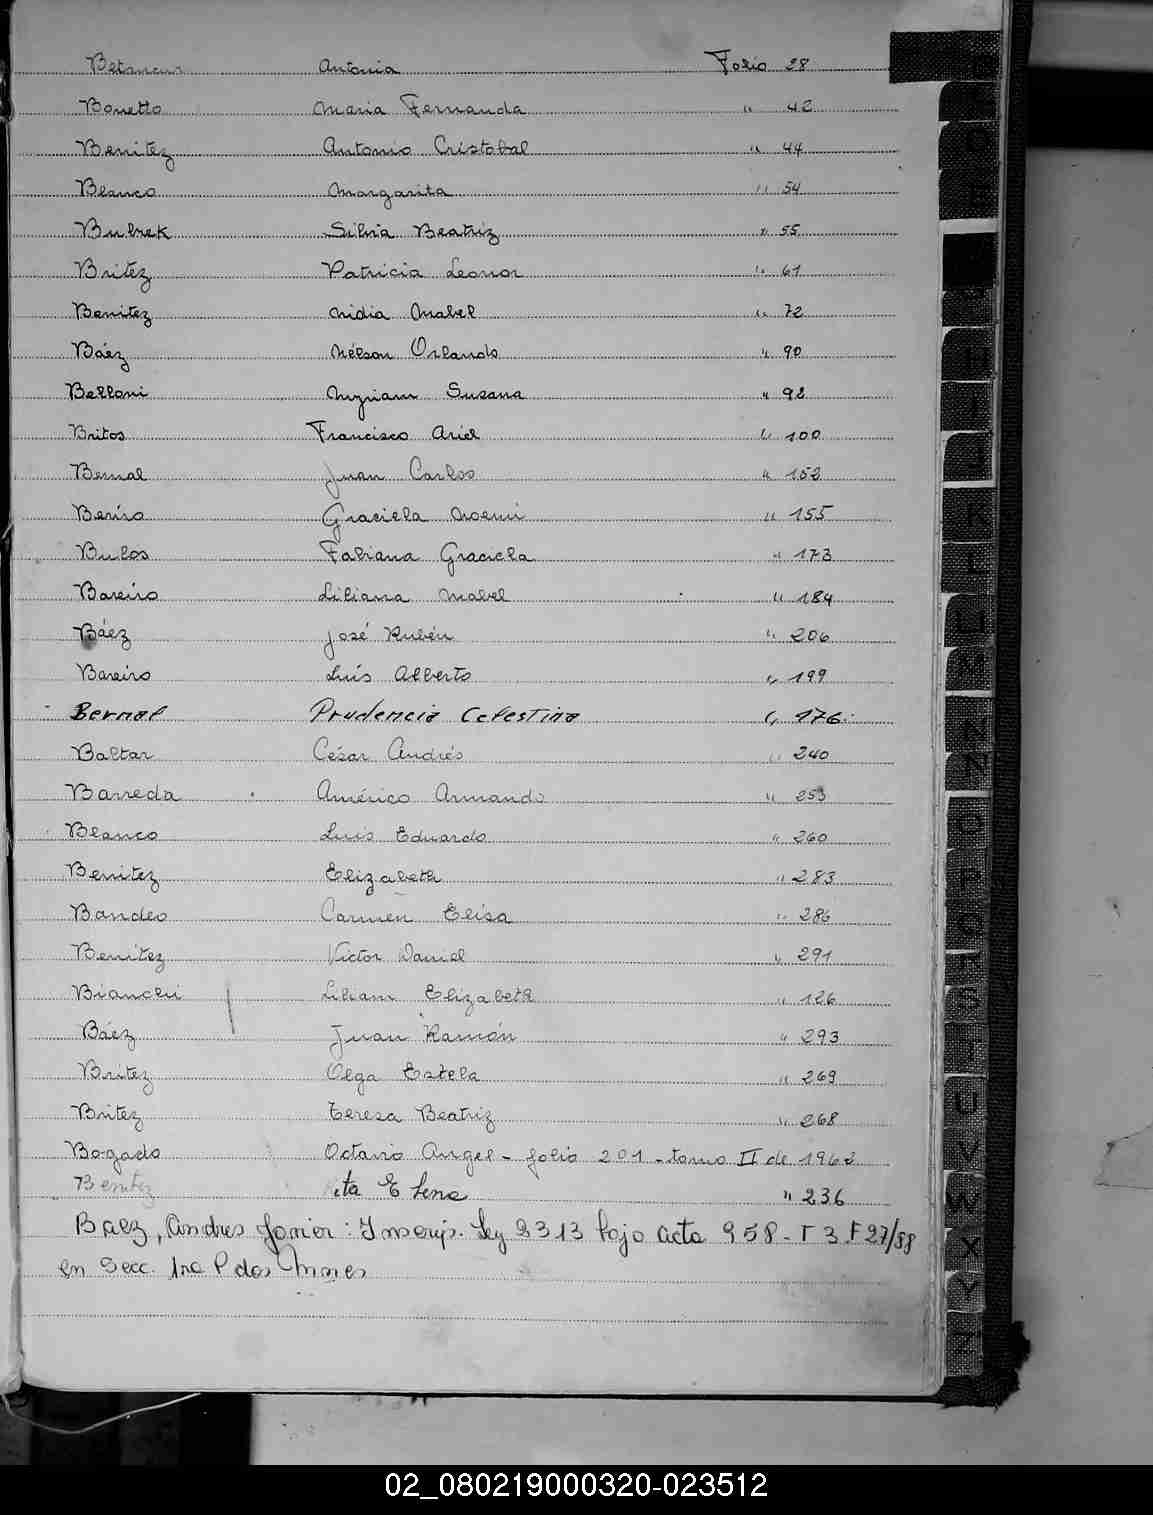 Betancur Antonia Folio 28
Bonetto Maria Fernanda " 42
Benitez Antonio Cristobal " 44
Blanco Margarita " 54
Bubrek Silvia Beatriz " 55
Britez Patricia Leonor " 61
Benitez Nidia Mabel " 72
Báez Nélson Orlando " 90
Belloni Myriam Susana " 98
Britos Francisco Ariel " 100
Bernal Juan Carlos " 152
Beniro Graciela Noemi " 155
Bulos Fabiana Graciela " 173
Bareiro Liliana Mabel " 184
Báez José Rubén " 206
Bareiro Luis Alberto " 199
Bernal Prudencia Celestina " 176
Baltar César Andrés " 240
Barreda Américo Armando " 253
Blanco Luis Eduardo " 260
Benitez Elizabeth " 283
Bandeo Carmen Elisa " 286
Benitez Victor Daniel " 291
Bianchi Liliam Elizabeth " 126
Báez Juan Ramón " 293
Britez Olga Estela " 269
Britez Teresa Beatriz " 268
Bogado Octavio Angel - folio 201 - tomo II de 1962
Benitez Rita Elena " 236
Baez, Andres Javier: Inscrip. Ley 2313 bajo acta 958 - T 3 F 27/88
en Secc. 1ra P dos
02_080219000320-023512